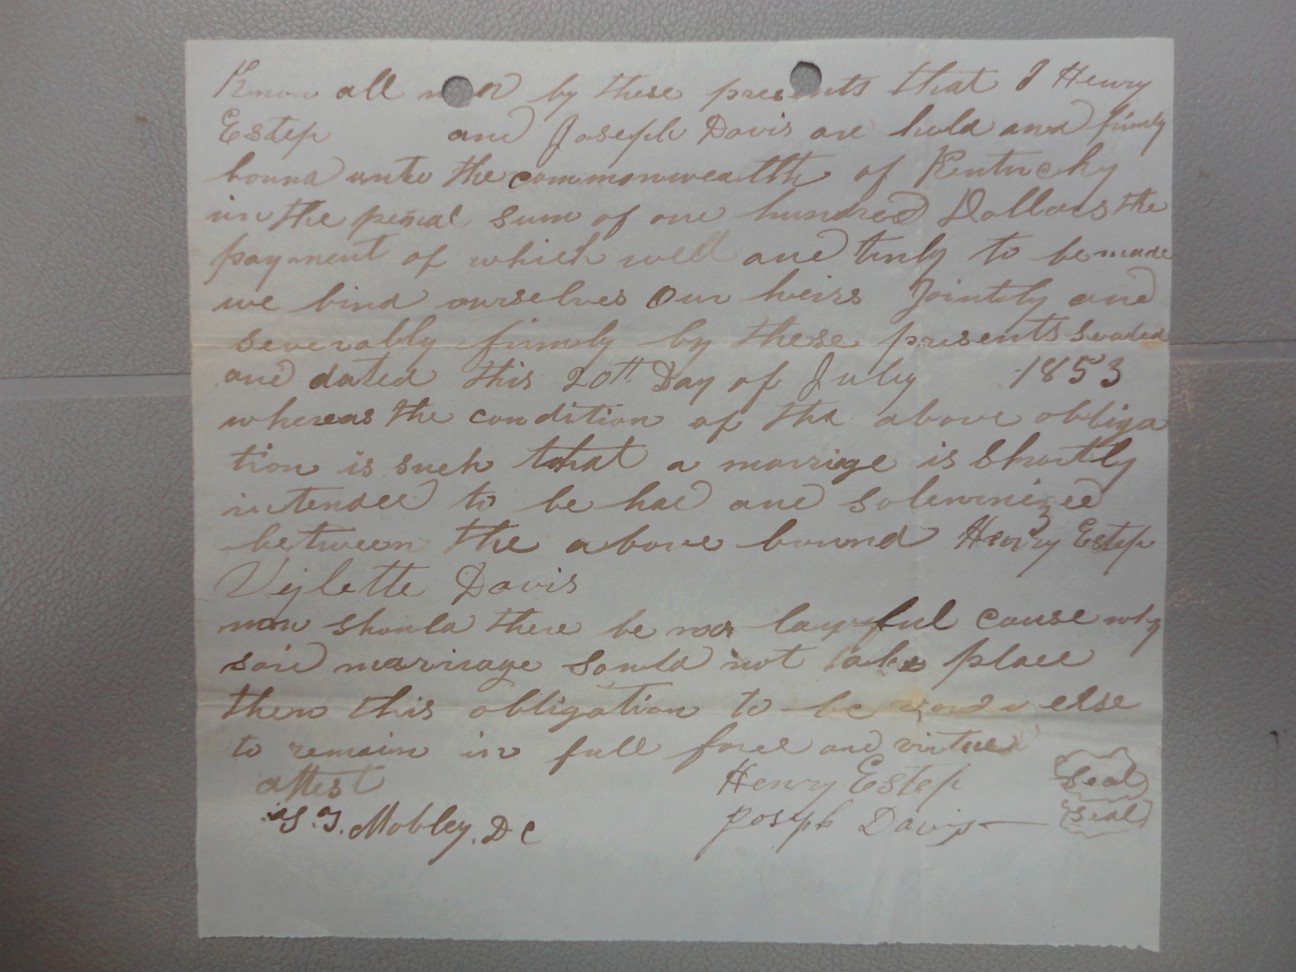 Know all men by these presents that I Henry
Estep and Joseph Davis are held and firmly
bound unto the commonwealth of Kentucky
in the penal sum of one hundred Dollars the
payment of which well and truly to be made
we bind ourselves Our heirs Jointly and
severably firmly by these presents sealed
and dated this 20th Day of July 1853
whereas the condition of the above obliga
tion is such that a marrige is Shortly
intended to be had and solemnized
between the above bound Henry Estep
Vijlette Davis
now should there be no lawful cause why
said marriage sould not take place
then this obligation to be void or else
to remain in full force and virtue
attest Henry Estep Seal
S. T. Mobley. D C Joseph Davis Seal